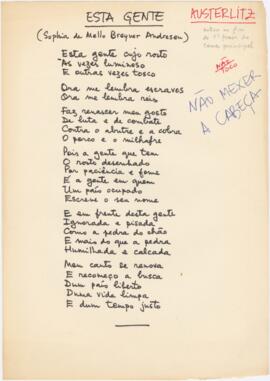 ESTA GENTE
AUSTERLITZ
(Sophia de Mello Breyner Andresen)
NÃO TOCO
NÃO MEXER
A CABEÇA
Esta gente cujo rosto
Às vezes luminoso
E outras vezes tosco
Ora me lembra escravos
Ora me lembra reis
Faz renascer meu gosto
De luta e de combate
Contra o abutre e a cobra
O porco e o milhafre
Pois a gente que tem
O rosto desenhado
Por paciência e fome
É a gente em quem
Um país ocupado
Escreve o seu nome
E em frente desta gente
Ignorada e pisada
Como a pedra do chão
E mais do que a pedra
Humilhada e calcada
Meu canto se renova
E recomeço a busca
Dum país liberto
Duma vida limpa
E dum tempo justo